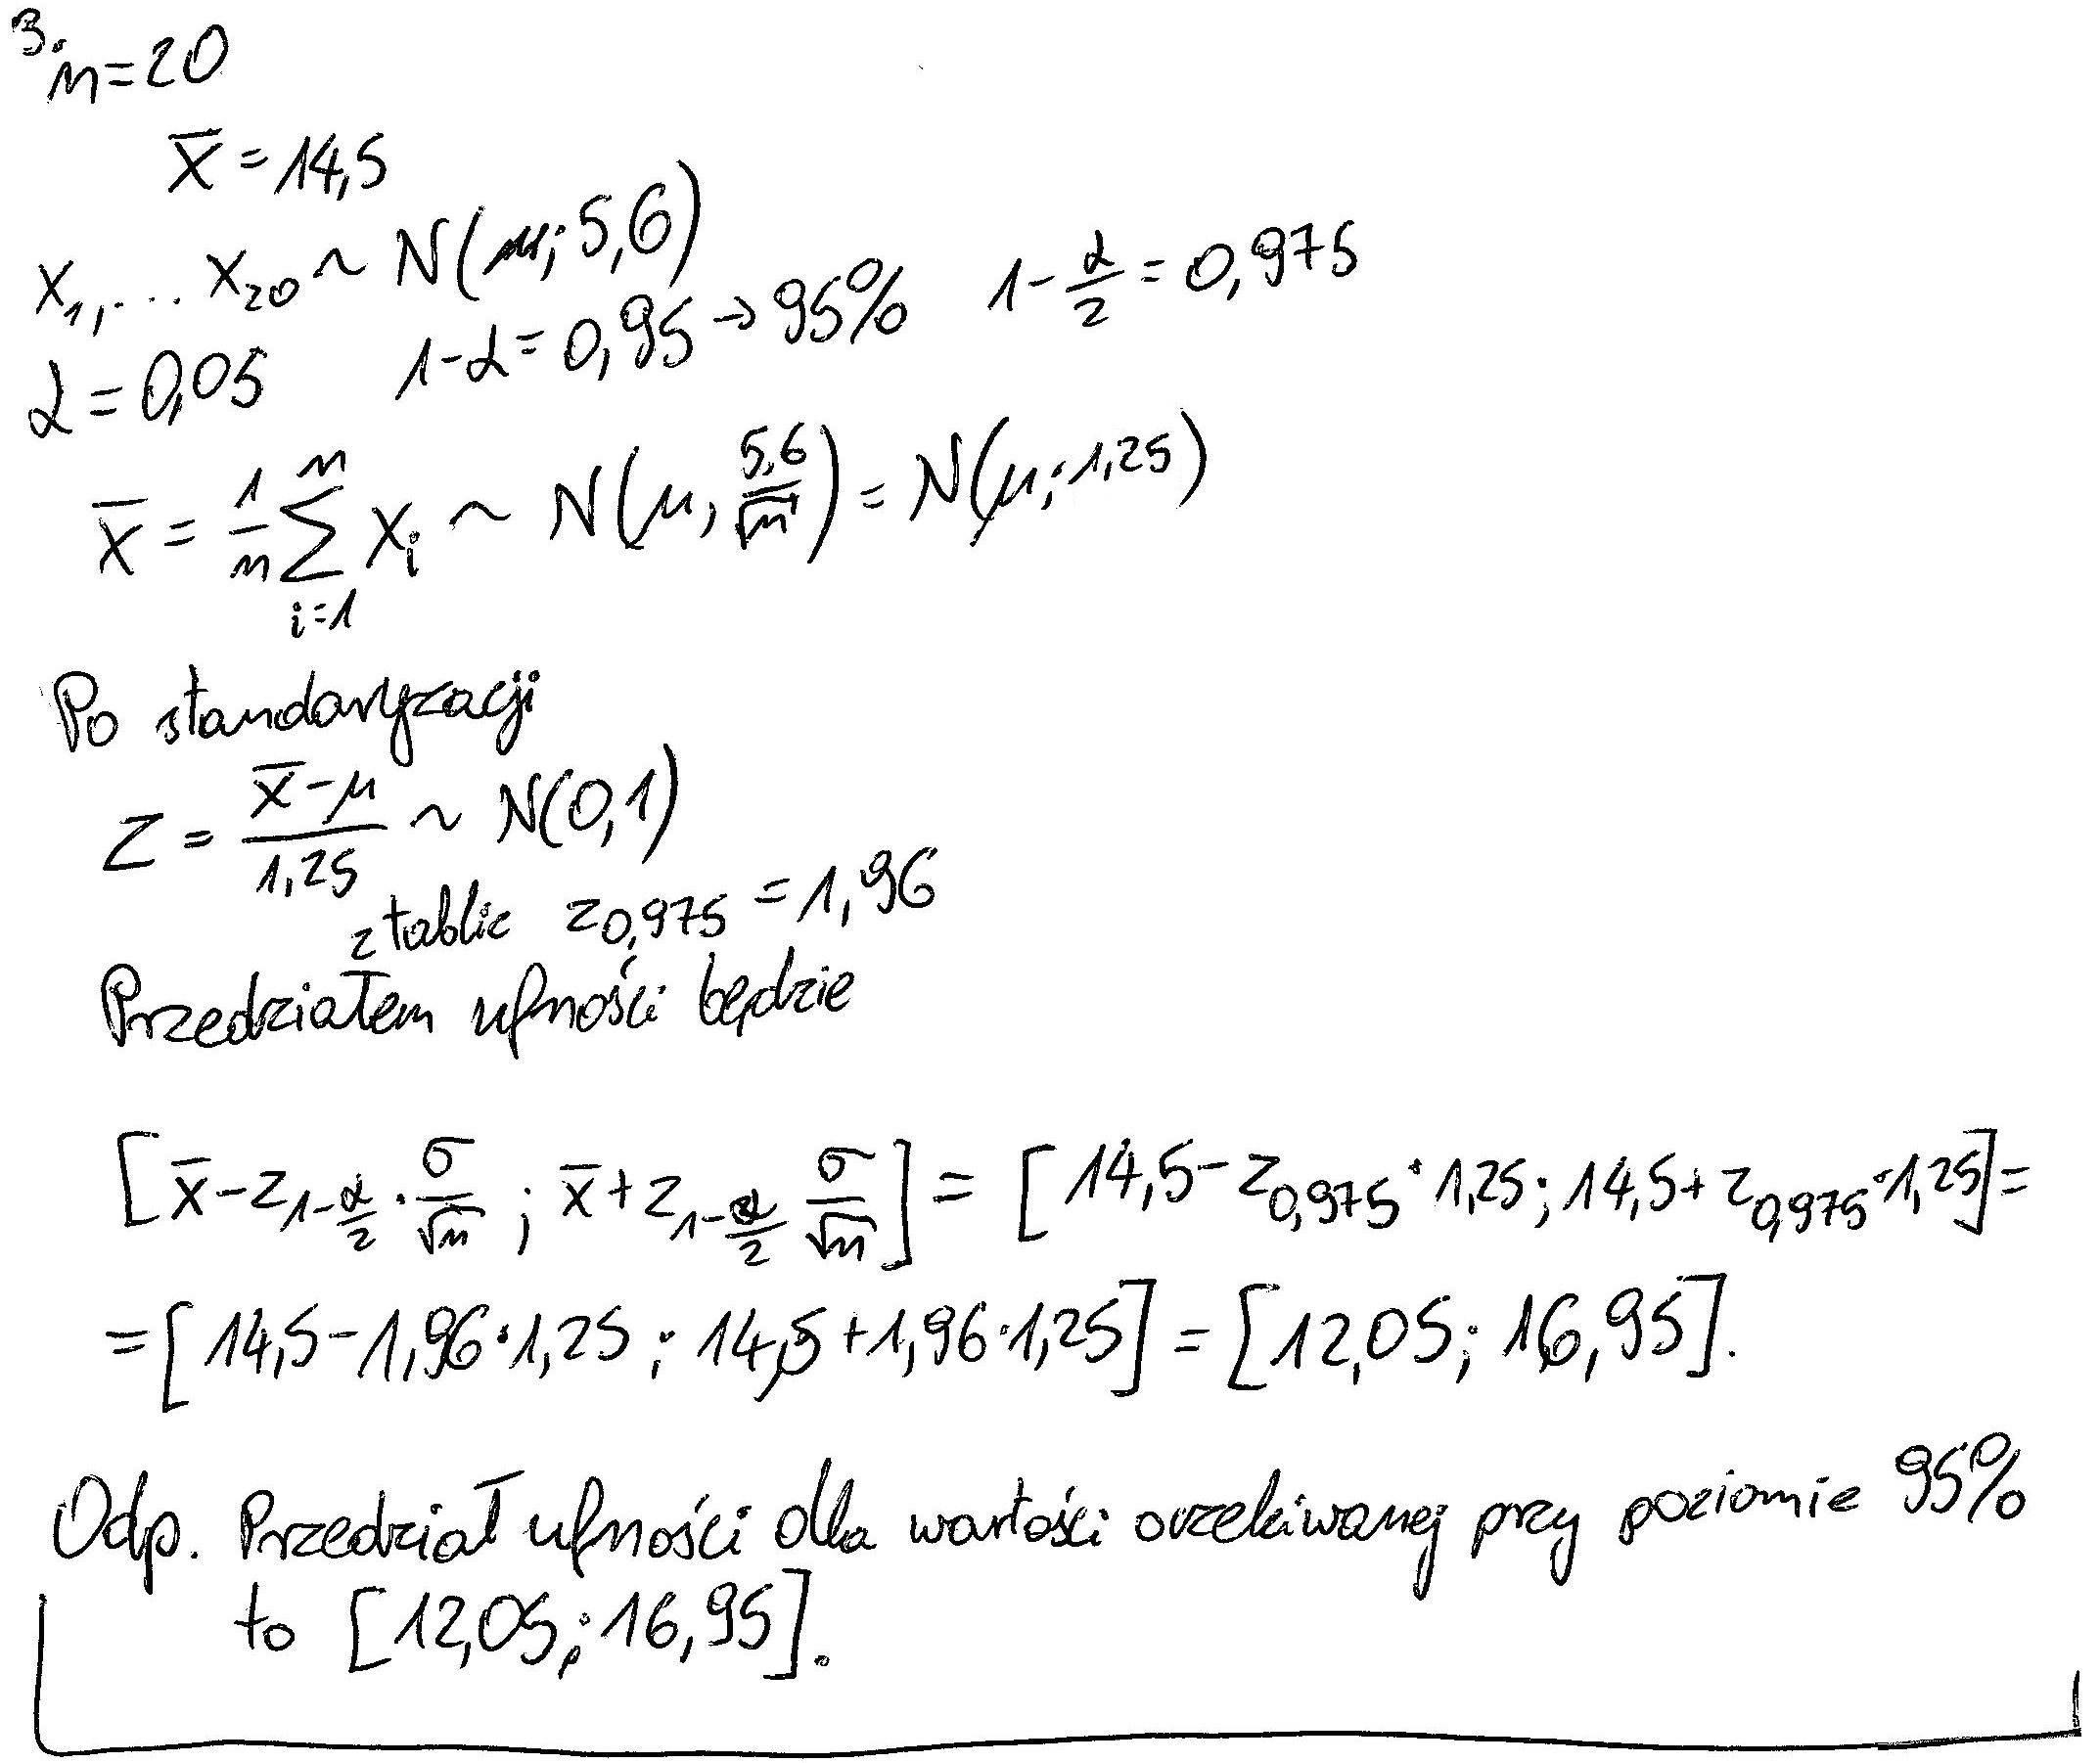 3.
n=20
x̄ = 14,5
x₁,... x₂₀ ~ N(μ; 5,6)
α = 0,05 1-α = 0,95 → 95% 1-α/2 = 0,975
x̄ = 1/n ∑_{i=1}^{n} x_i ~ N(μ, 5,6/√n) = N(μ; 1,25)
Po standaryzacji
Z = (x̄-μ)/1,25 ~ N(0,1)
z tablic z_{0,975} = 1,96
Przedziałem ufności będzie
[x̄ - z_{1-α/2} · σ/√n ; x̄ + z_{1-α/2} σ/√n] = [14,5 - z_{0,975} · 1,25 ; 14,5 + z_{0,975} · 1,25] =
= [14,5 - 1,96 · 1,25 ; 14,5 + 1,96 · 1,25] = [12,05 ; 16,95].
Odp. Przedział ufności dla wartości oczekiwanej przy poziomie 95%
to [12,05 ; 16,95].